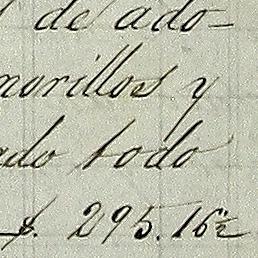 de ado=
morillos y
ado todo
$. 295.16½